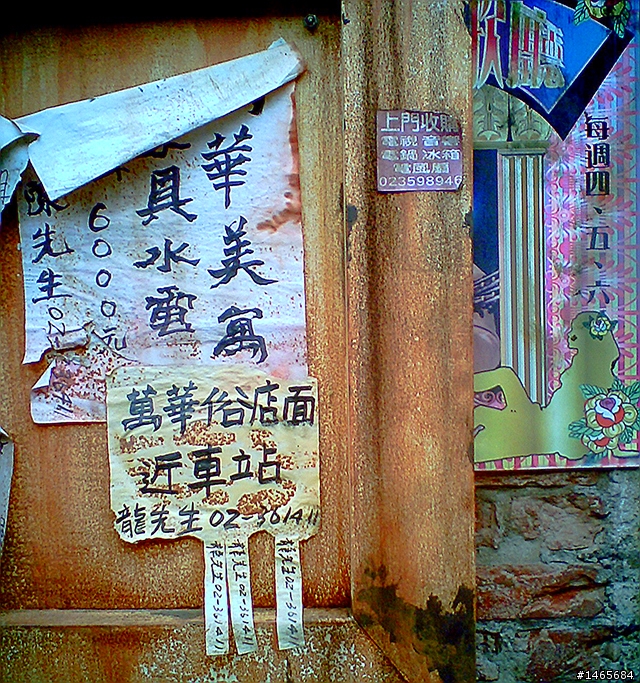 華美寓
具水電
6000元
陳先生
萬華俗店面
近車站
龍先生 02-361411
龍先生 02-361411
龍先生 02-361411
龍先生 02-361411
上門收購
電視 音響
電鍋 冰箱
電風扇
023598946
歡廳
每週四、五、六
#1465684